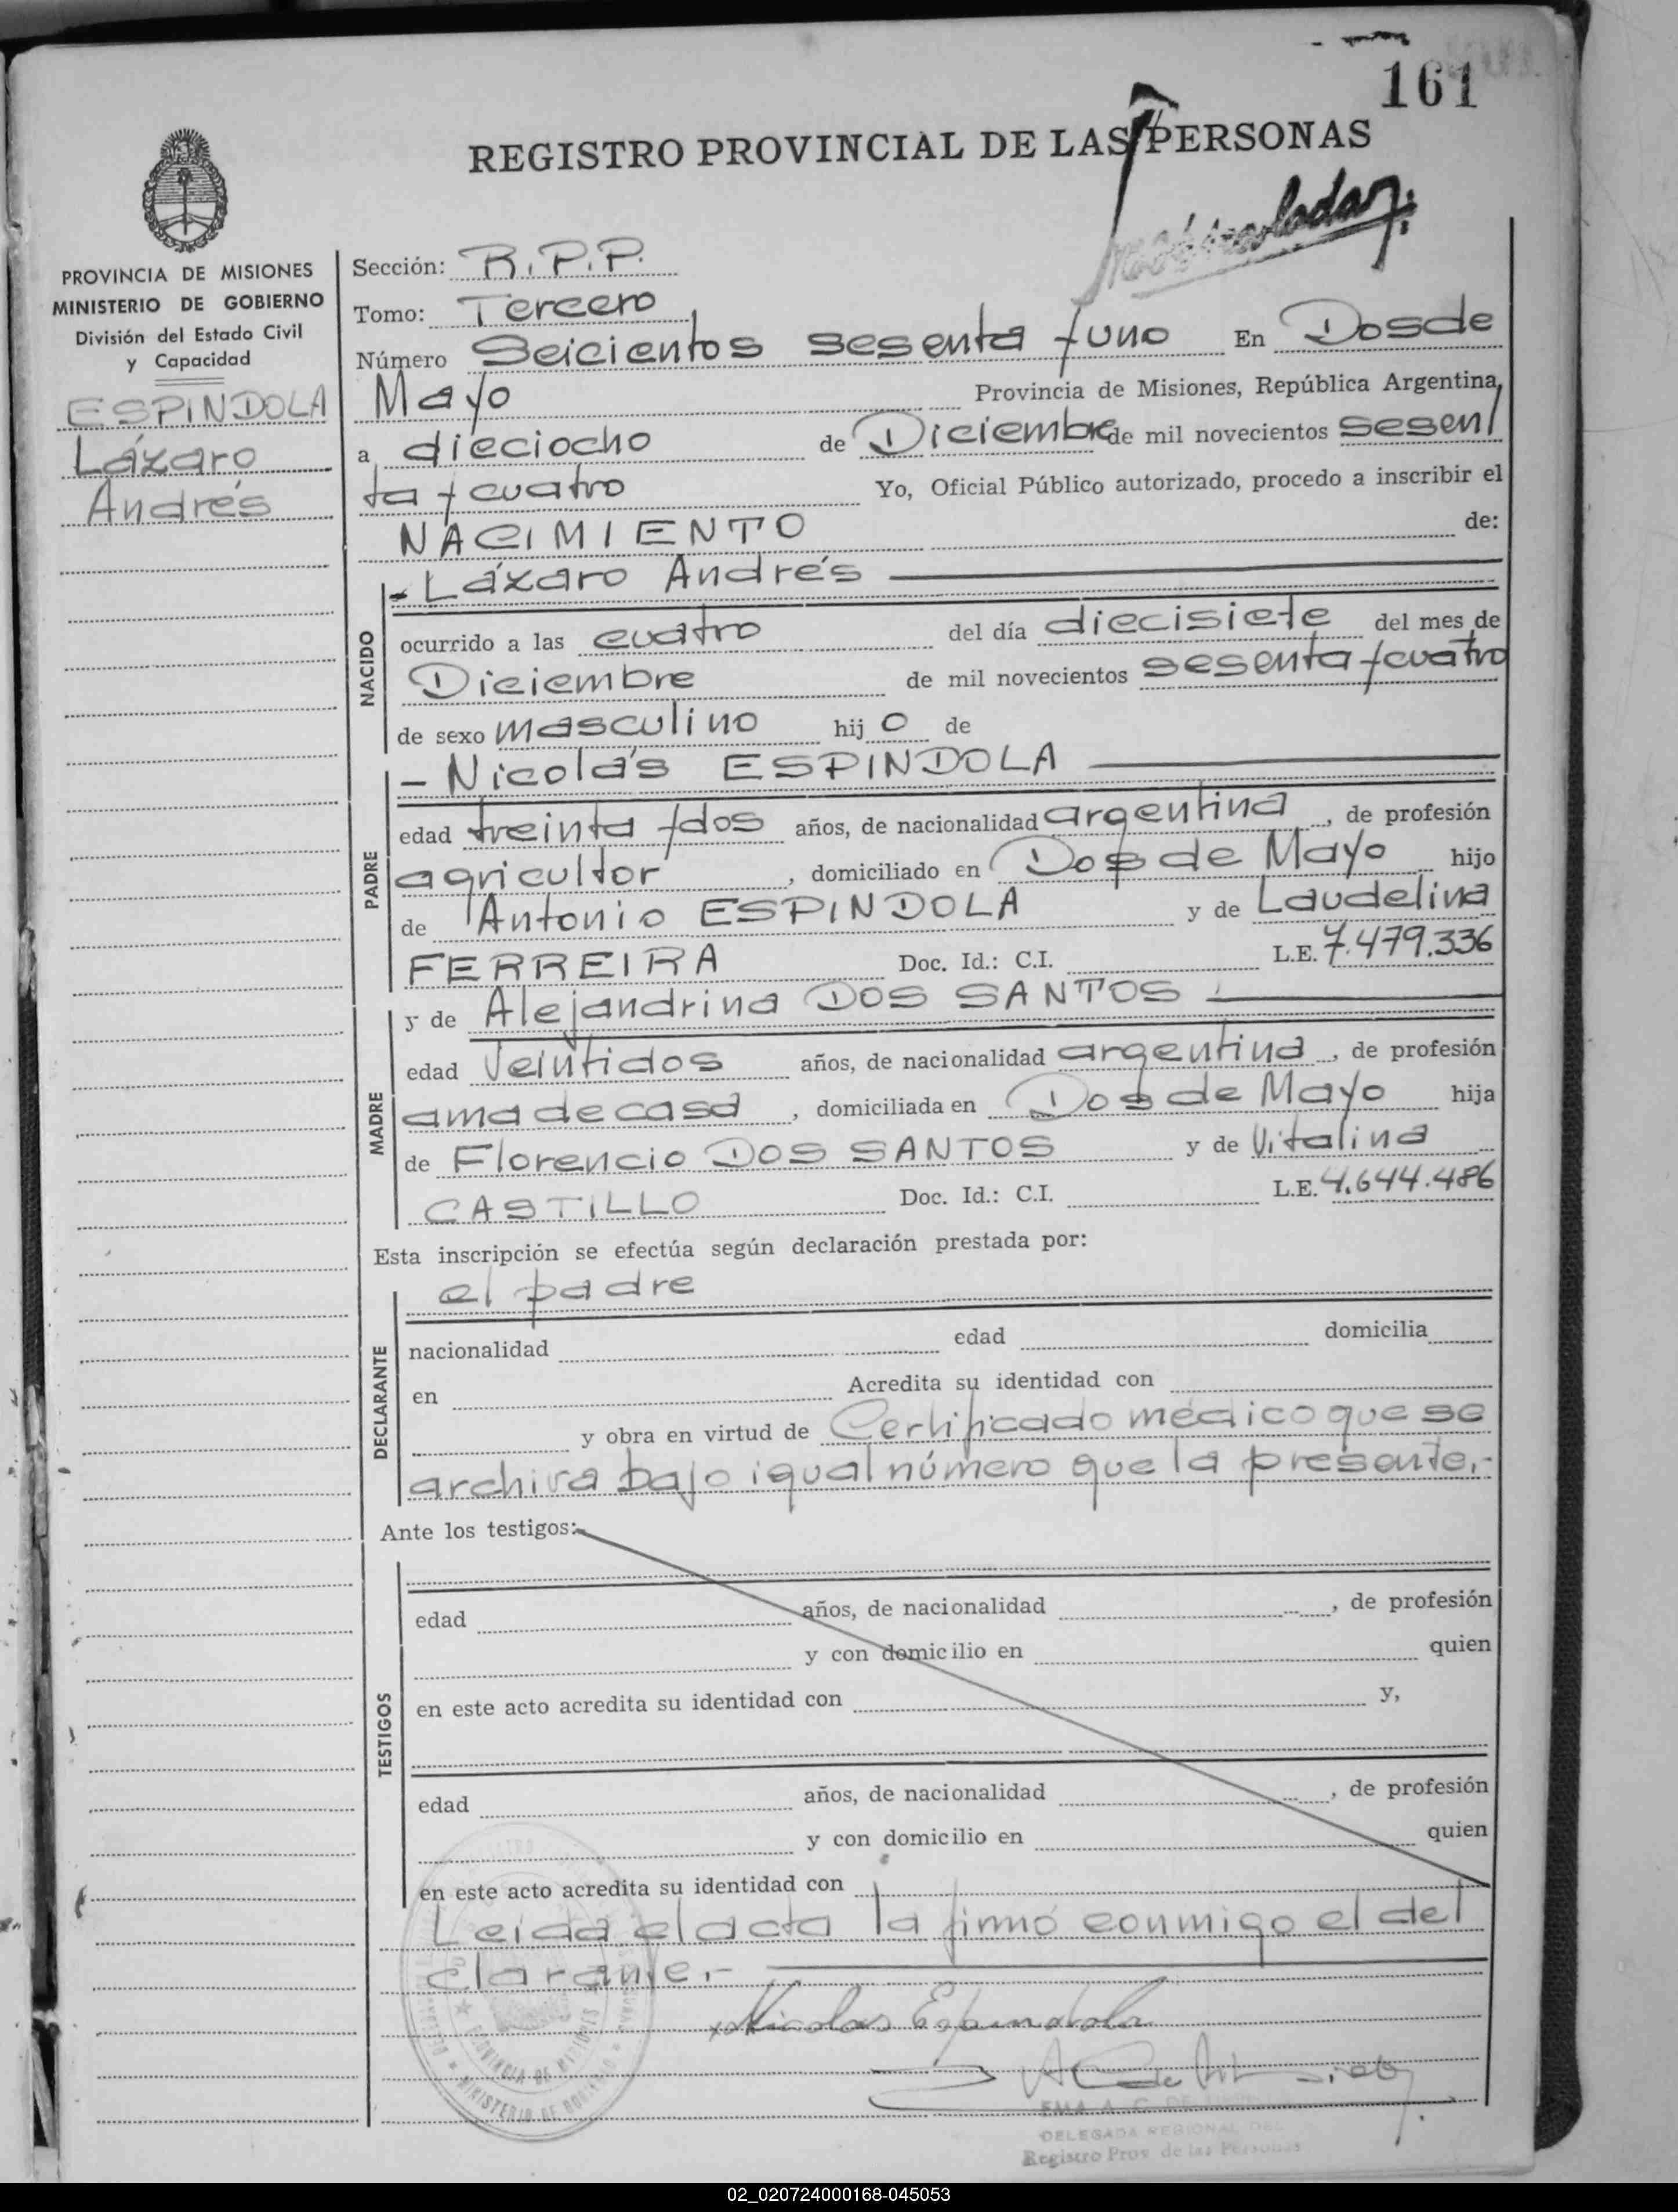 161
REGISTRO PROVINCIAL DE LAS PERSONAS
PROVINCIA DE MISIONES
MINISTERIO DE GOBIERNO
División del Estado Civil
y Capacidad
ESPINDOLA
Lázaro
Andrés
Sección: R.P.P.
Tomo: Tercero
Número Seicientos sesenta y uno En Dos de
Mayo Provincia de Misiones, República Argentina,
a dieciocho de Diciembre de mil novecientos sesen/
ta y cuatro Yo, Oficial Público autorizado, procedo a inscribir el
NACIMIENTO de:
NACIDO
- Lázaro Andrés
ocurrido a las cuatro del día diecisiete del mes de
Diciembre de mil novecientos sesenta y cuatro
de sexo masculino hijo de
PADRE
- Nicolás ESPINDOLA
edad treinta y dos años, de nacionalidad argentina, de profesión
agricultor, domiciliado en Dos de Mayo hijo
de Antonio ESPINDOLA y de Laudelina
FERREIRA Doc. Id.: C.I. L.E. 7.479.336
MADRE
y de Alejandrina DOS SANTOS
edad Veintidos años, de nacionalidad argentina, de profesión
ama de casa, domiciliada en Dos de Mayo hija
de Florencio DOS SANTOS y de Vitalina
CASTILLO Doc. Id.: C.I. L.E. 4.644.486
Esta inscripción se efectúa según declaración prestada por:
DECLARANTE
el padre
nacionalidad edad domicilia
en Acredita su identidad con
y obra en virtud de Certificado médico que se
archiva bajo igual número que la presente.-
Ante los testigos:
TESTIGOS
edad años, de nacionalidad , de profesión
y con domicilio en quien
en este acto acredita su identidad con y,
edad años, de nacionalidad , de profesión
y con domicilio en quien
en este acto acredita su identidad con
Leida el acta la firmó conmigo el de/
clarante.-
Nicolas Espindola
PROVINCIA DE MISIONES
MINISTERIO DE GOBIERNO
DELEGADA REGIONAL DEL
Registro Prov. de las Personas
02_020724000168-045053